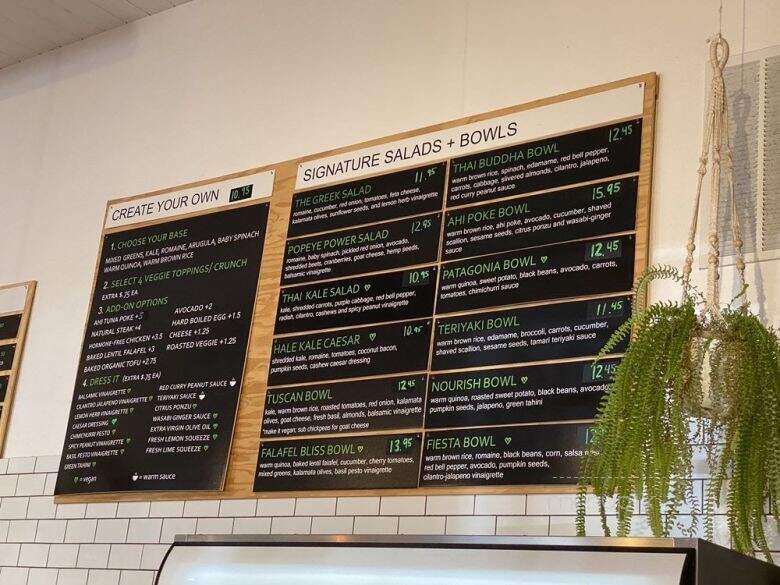 CREATE YOUR OWN 10.95
1. CHOOSE YOUR BASE
MIXED GREENS, KALE, ROMAINE, ARUGULA, BABY SPINACH
WARM QUINOA, WARM BROWN RICE
2. SELECT 4 VEGGIE TOPPINGS/ CRUNCH
EXTRA $.75 EA
3. ADD-ON OPTIONS
AHI TUNA POKE
NATURAL STEAK +4
HORMONE-FREE CHICKEN +3.5
BAKED LENTIL FALAFEL +3
BAKED ORGANIC TOFU +2.75
AVOCADO +2
HARD BOILED EGG +1.5
CHEESE +1.25
ROASTED VEGGIE +1.25
4. DRESS IT (EXTRA $.75 EA)
BALSAMIC VINAIGRETTE ♥
CILANTRO JALAPENO VINAIGRETTE ♥
LEMON HERB VINAIGRETTE ♥
CAESAR DRESSING ♥
CHIMICHURRI PESTO ♥
SPICY PEANUT VINAIGRETTE ♥
BASIL PESTO VINAIGRETTE ♥
GREEN TAHINI ♥
RED CURRY PEANUT SAUCE
TERIYAKI SAUCE
CITRUS PONZU ♥
WASABI GINGER SAUCE ♥
EXTRA VIRGIN OLIVE OIL ♥
FRESH LEMON SQUEEZE ♥
FRESH LIME SQUEEZE ♥
♥ = vegan
= warm sauce
SIGNATURE SALADS + BOWLS
THE GREEK SALAD 11.95
romaine, cucumber, red onion, tomatoes, feta cheese,
kalamata olives, sunflower seeds, and lemon herb vinaigrette
POPEYE POWER SALAD 12.95
romaine, baby spinach, pickled red onion, avocado,
shredded beets, cranberries, goat cheese, hemp seeds,
balsamic vinaigrette
THAI KALE SALAD ♥ 10.95
kale, shredded carrots, purple cabbage, red bell pepper,
radish, cilantro, cashews and spicy peanut vinaigrette
HALE KALE CAESAR ♥ 10.95
shredded kale, romaine, tomatoes, coconut bacon,
pumpkin seeds, cashew caesar dressing
TUSCAN BOWL 12.45
kale, warm brown rice, roasted tomatoes, red onion, kalamata
olives, goat cheese, fresh basil, almonds, balsamic vinaigrette
*make it vegan; sub chickpeas for goat cheese
FALAFEL BLISS BOWL ♥ 13.95
warm quinoa, baked lentil falafel, cucumber, cherry tomatoes,
mixed greens, kalamata olives, basil pesto vinaigrette
THAI BUDDHA BOWL 12.45
warm brown rice, spinach, edamame, red bell pepper,
carrots, cabbage, slivered almonds, cilantro, jalapeno,
red curry peanut sauce
AHI POKE BOWL 15.95
warm brown rice, ahi poke, avocado, cucumber, shaved
scallion, sesame seeds, citrus ponzu and wasabi-ginger
sauce
PATAGONIA BOWL ♥ 12.45
warm quinoa, sweet potato, black beans, avocado, carrots,
tomatoes, chimichurri sauce
TERIYAKI BOWL 11.45
warm brown rice, edamame, broccoli, carrots, cucumber,
shaved scallion, sesame seeds, tamari teriyaki sauce
NOURISH BOWL ♥ 12.45
warm quinoa, roasted sweet potato, black beans, avocado
pumpkin seeds, jalapeno, green tahini
FIESTA BOWL ♥ 12
warm brown rice, romaine, black beans, corn, salsa
red bell pepper, avocado, pumpkin seeds,
cilantro-jalapeno vinaigrette